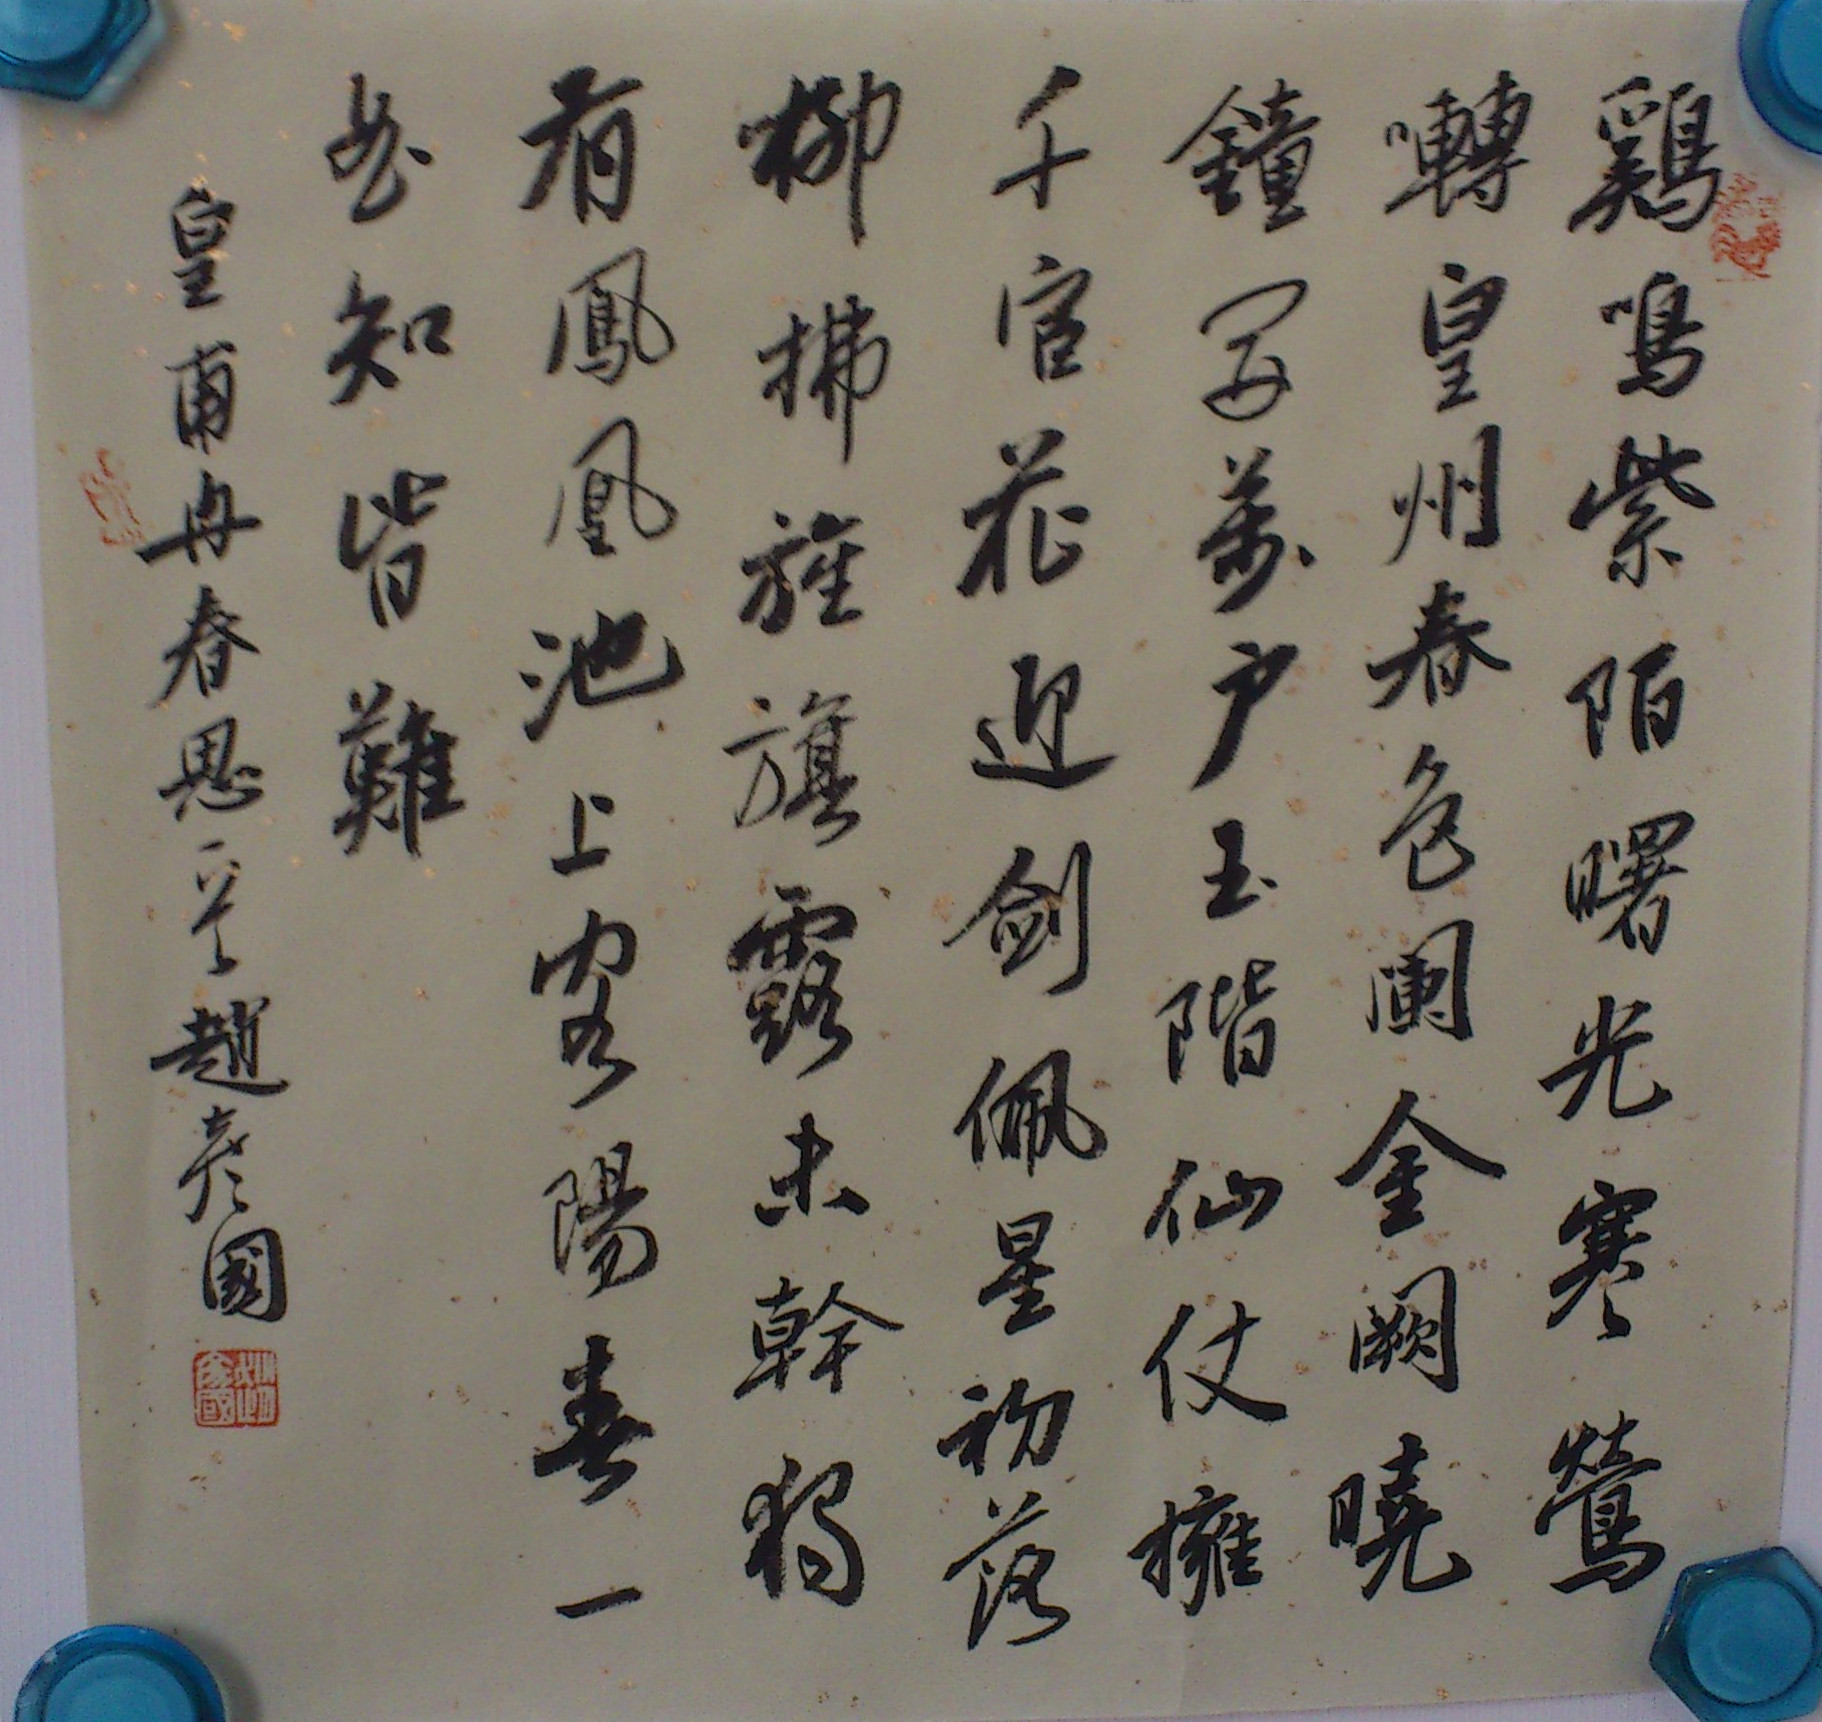 鷄鳴紫陌曙光寒鶯
囀皇州春色闌金闕曉
鐘開萬户玉階仙仗擁
千官花迎劍佩星初落
柳拂旌旗露未幹獨
有鳳凰池上客陽春一
曲知皆難
皇甫冉春思一首趙彦國